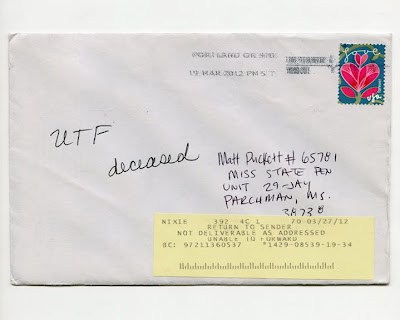 PORTLAND OR 972
19 MAR 2012 PM 5 T
Love
USA
UTF
deceased
Matt Puckett # 65781
MISS STATE PEN
UNIT 29-JAY
PARCHMAN, MS.
38738
NIXIE 392 4C 1 70 03/27/12
RETURN TO SENDER
NOT DELIVERABLE AS ADDRESSED
UNABLE TO FORWARD
BC: 97211360537 *1429-08539-19-34